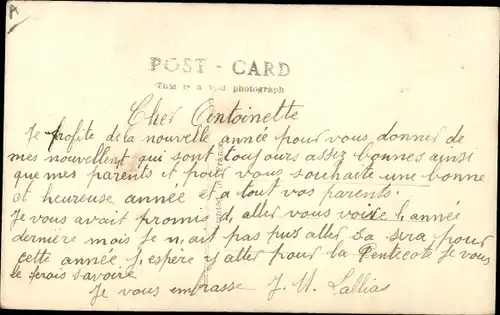 A
POST - CARD
This is a real photograph
Cher Antoinette
Je profite de la nouvelle année pour vous donner de
mes nouvellent qui sont toujours assez bonnes ainsi
que mes parents et pour vous souhaite une bonne
et heureuse année et a tout vos parents.
Je vous avait promis d, aller vous voire l, année
dernière mois je n, ait pas puz aller Sa sera pour
cette année j, espère y aller pour la Pentecote je vous
le ferais savoire
Je vous embrasse J. M. Lallia